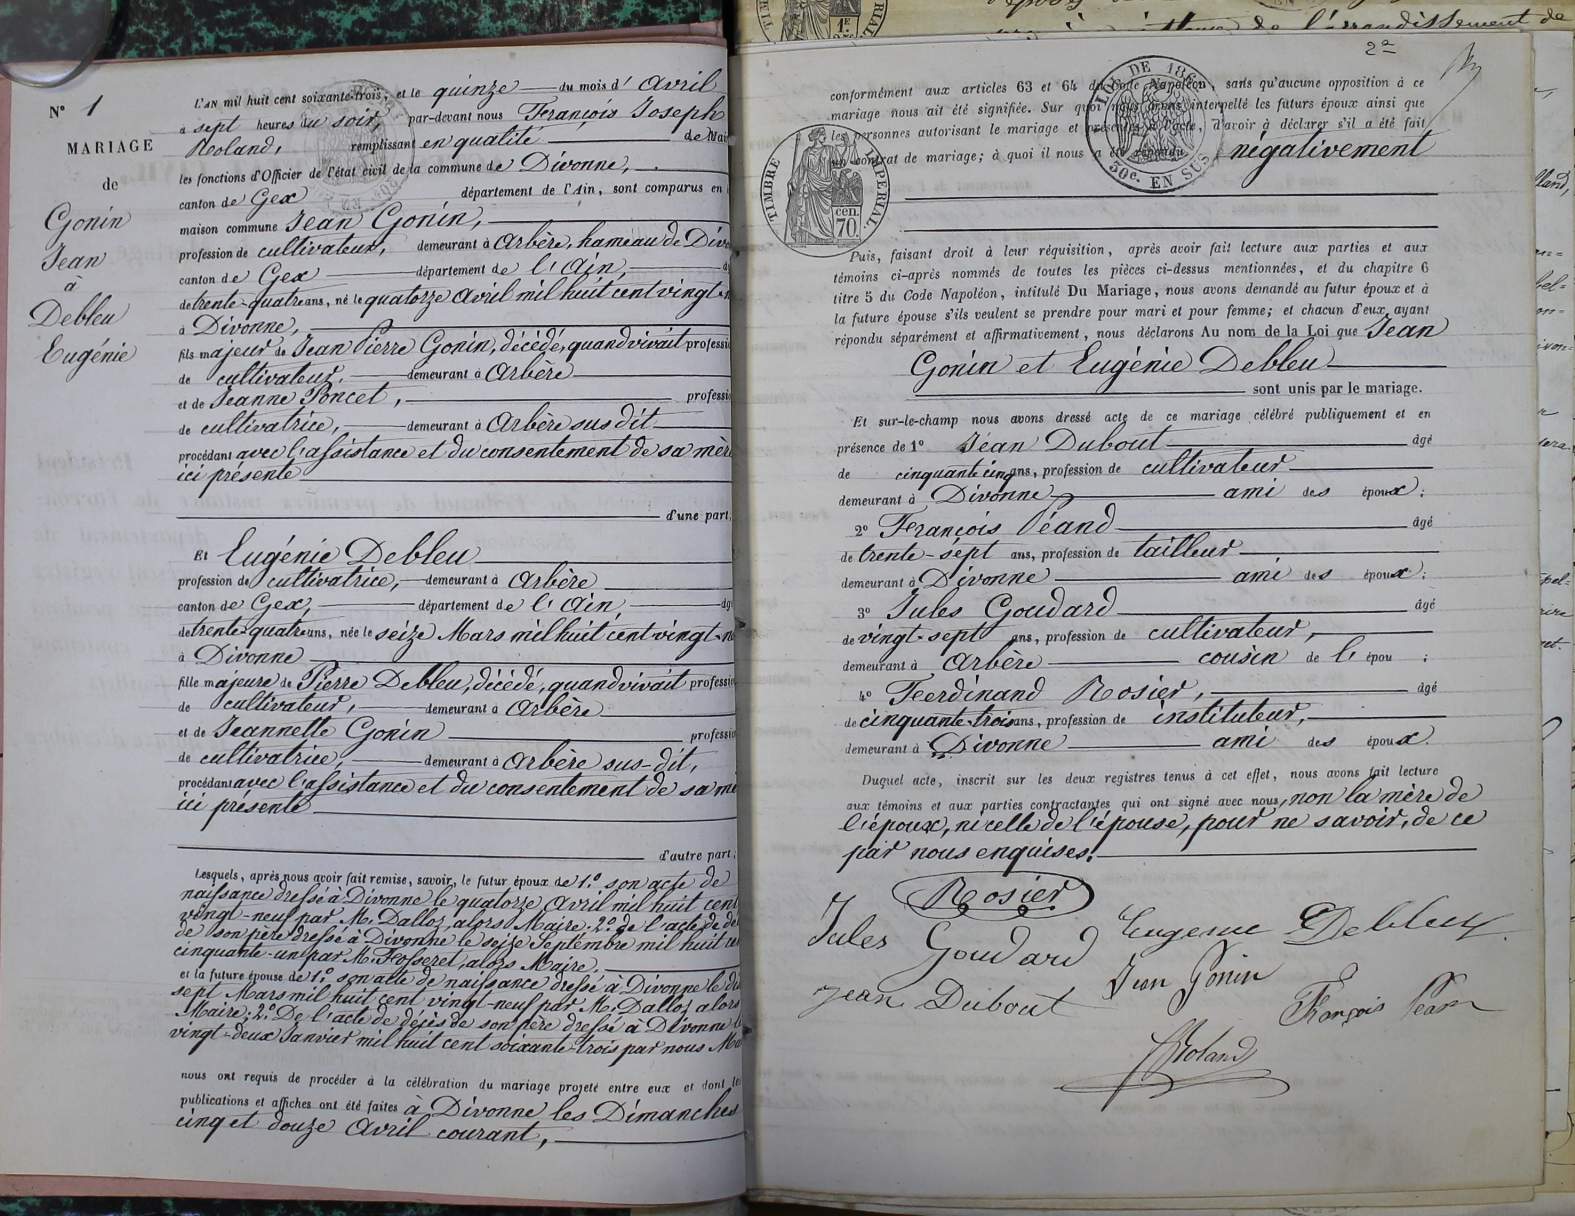 N° 1
MARIAGE
de
Gonin
Jean
à
Debleu
Eugénie
L'AN mil huit cent soixante-trois, et le quinze du mois d'Avril
à sept heures du soir, par-devant nous François Joseph
Roland, remplissant en qualité de Mai
les fonctions d'Officier de l'état civil de la commune de Divonne,
canton de Gex département de l'Ain, sont comparus en
maison commune Jean Gonin,
profession de cultivateur, demeurant à Arbère, hameau de Divo
canton de Gex département de l'Ain,
de trente-quatre ans, né le quatorze Avril mil huit cent vingt-n
à Divonne,
fils majeur de Jean Pierre Gonin, décédé, quand vivait professi
de cultivateur, demeurant à Arbère
et de Jeanne Poncet, professi
de cultivatrice, demeurant à Arbère susdit
procédant avec l'assistance et du consentement de sa mèr
ici présente
d'une part,
Et Eugénie Debleu
profession de cultivatrice, demeurant à Arbère
canton de Gex, département de l'Ain âg
de trente-quatre ans, née le seize Mars mil huit cent vingt-n
à Divonne
fille majeure de Pierre Debleu, décédé, quand vivait professio
de cultivateur, demeurant à Arbère
et de Jeannette Gonin professi
de cultivatrice, demeurant à Arbère sus-dit,
procédant avec l'assistance et du consentement de sa mè
ici présente
d'autre part;
Lesquels, après nous avoir fait remise, savoir, le futur époux de 1.° son acte de
naissance dressé à Divonne le quatorze Avril mil huit cent
vingt-neuf par M. Dalloz, alors Maire; 2.° de l'acte de dé
de son père dressé à Divonne le seize Septembre mil huit ce
cinquante-un par M. Rosseret, alors Maire.
et la future épouse de 1.° son acte de naissance dressé à Divonne le dix
sept Mars mil huit cent vingt-neuf par M. Dalloz alors
Maire; 2.° De l'acte de décès de son père dressé à Divonne le
vingt-deux Janvier mil huit cent soixante-trois par nous Ma
nous ont requis de procéder à la célébration du mariage projeté entre eux et dont les
publications et affiches ont été faites à Divonne les Dimanches
cinq et douze Avril courant,
2e
conformément aux articles 63 et 64 du Code Napoléon, sans qu'aucune opposition à ce
mariage nous ait été signifiée. Sur quoi nous avons interpellé les futurs époux ainsi que
les personnes autorisant le mariage et présentes à l'acte, d'avoir à déclarer s'il a été fait
un contrat de mariage; à quoi il nous a été répondu négativement
TIMBRE IMPÉRIAL
70 cen.
50c. EN SUS
Puis, faisant droit à leur réquisition, après avoir fait lecture aux parties et aux
témoins ci-après nommés de toutes les pièces ci-dessus mentionnées, et du chapitre 6
titre 5 du Code Napoléon, intitulé Du Mariage, nous avons demandé au futur époux et à
la future épouse s'ils veulent se prendre pour mari et pour femme; et chacun d'eux ayant
répondu séparément et affirmativement, nous déclarons Au nom de la Loi que Jean
Gonin et Eugénie Debleu
sont unis par le mariage.
Et sur-le-champ nous avons dressé acte de ce mariage célébré publiquement et en
présence de 1° Jean Dubout âgé
de cinquante cinq ans, profession de cultivateur
demeurant à Divonne ami des époux;
2° François Péand âgé
de trente-sept ans, profession de tailleur
demeurant à Divonne ami des époux;
3° Jules Goudard âgé
de vingt-sept ans, profession de cultivateur,
demeurant à Arbère cousin de l'épou ;
4° Ferdinand Rosier, âgé
de cinquante-trois ans, profession de instituteur,
demeurant à Divonne ami des époux.
Duquel acte, inscrit sur les deux registres tenus à cet effet, nous avons fait lecture
aux témoins et aux parties contractantes qui ont signé avec nous, non la mère de
l'époux, ni celle de l'épouse, pour ne savoir, de ce
par nous enquises.
Rosier
Jules Goudard Eugenie Debleu
Jean Dubout Jean Gonin François Péan
Roland